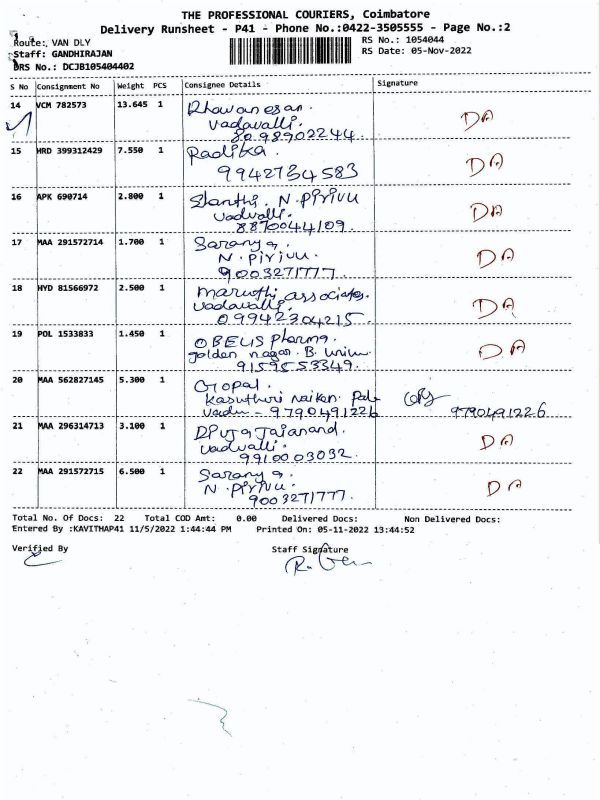 THE PROFESSIONAL COURIERS, Coimbatore
Delivery Runsheet - P41 - Phone No.:0422-3505555 - Page No.:2
Route: VAN DLY
RS No.: 1054044
Staff: GANDHIRAJAN
RS Date: 05-Nov-2022
DRS No.: DCJB105404402
S No Consignment No Weight PCS Consignee Details Signature
14 VCM 782573 13.645 1 Bhavanesan.
Vadavalli.
8098902244
DA
15 HRD 399312429 7.550 1 Radika.
9942734583
DA
16 APK 690714 2.800 1 Shanthi. N. Pirivu
Vadvalli.
8870044109.
DA
17 MAA 291572714 1.700 1 Saranya.
N. Pirivu.
9003271777.
DA
18 HYD 81566972 2.500 1 Maruthi associates.
Vadavalli.
09942304215.
DA
19 POL 1533833 1.450 1 OBELIS Pharma.
golden nagar. B. Univ
9159553349.
DA
20 MAA 562827145 5.300 1 Gopal.
Kasuthuri naiken Pal
Vadu - 9790491226
9790491226
21 MAA 296314713 3.100 1 Jaianand.
Vadvalli.
9910003032.
DA
22 MAA 291572715 6.500 1 Saranya.
N. Pirivu.
9003271777.
DA
Total No. Of Docs: 22 Total COD Amt: 0.00 Delivered Docs: Non Delivered Docs:
Entered By :KAVITHAP41 11/5/2022 1:44:44 PM Printed On: 05-11-2022 13:44:52
Verified By Staff Signature